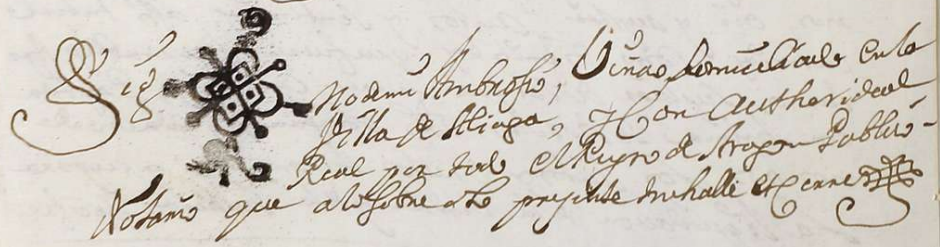 Sig no de mi Ambrosio Viñao domiciliado en la
Villa de Aliaga, y Con Authoridad
Real por todo el Reyno de Aragon Publico
Notario que a lo sobre dho presente me halle et Cerre